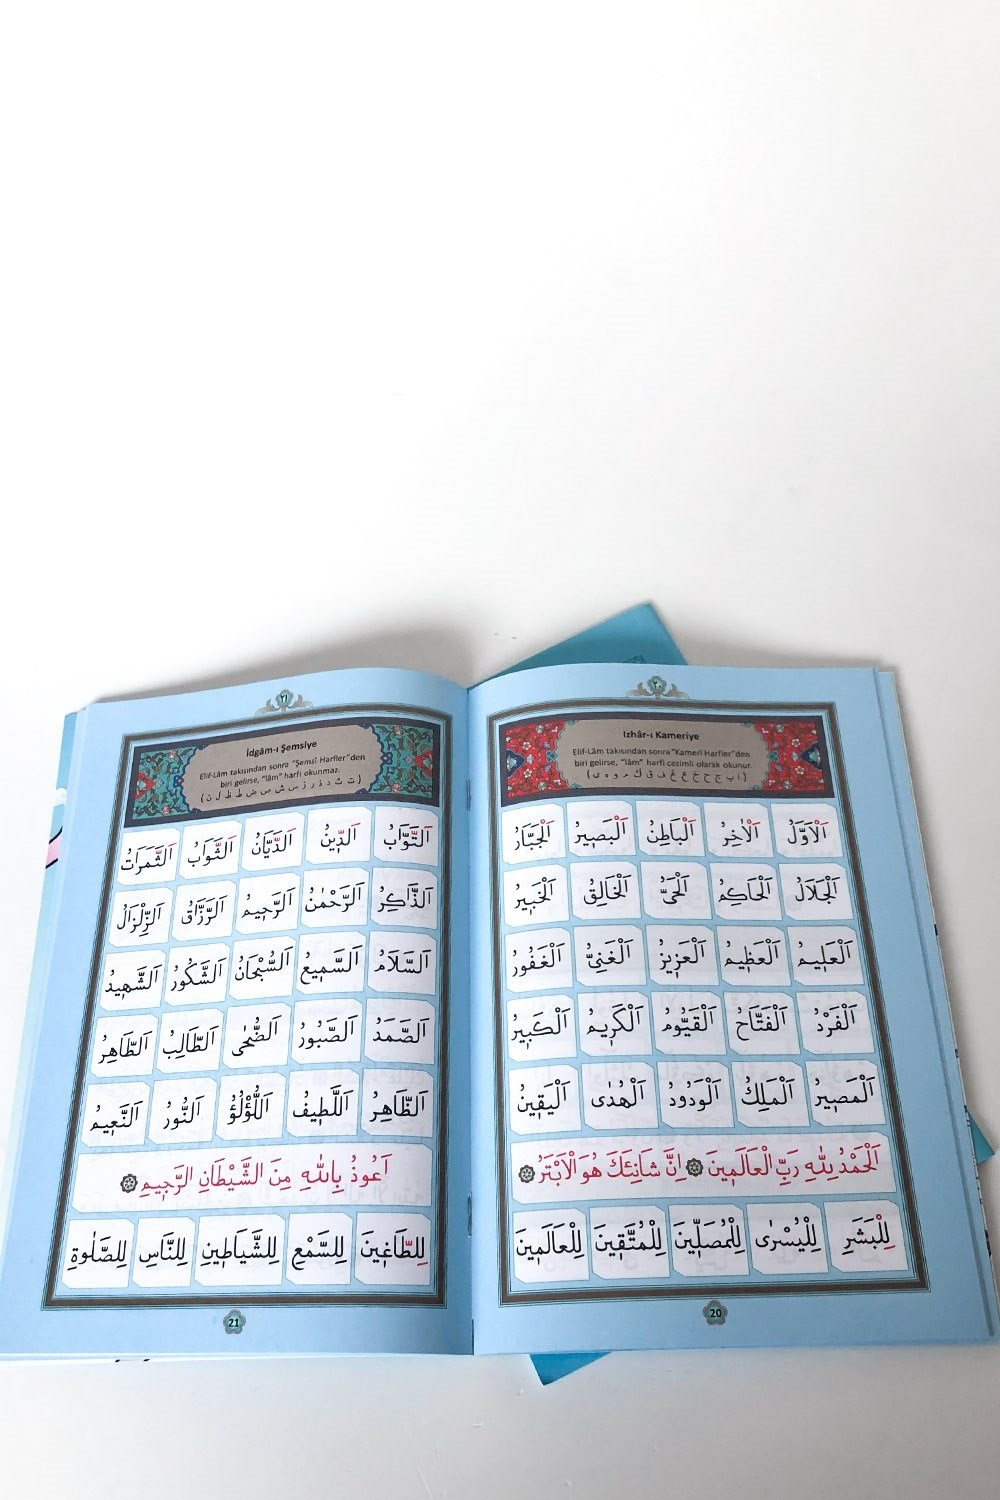 ٢٠
Izhâr-ı Kameriye
Elif-Lâm takısından sonra "Kamerî Harfler"den
biri gelirse, "lâm" harfi cezimli olarak okunur.
( ا ب ج ح خ ع غ ف ق ك م و ه ى )
اَلْاَوَّلُ اَلْاٰخِرُ اَلْبَاطِنُ اَلْبَصِيرُ اَلْجَبَّارُ
اَلْجَلَالُ اَلْحَاكِمُ اَلْحَىُّ اَلْخَالِقُ اَلْخَبِيرُ
اَلْعَلِيمُ اَلْعَظِيمُ اَلْعَزِيزُ اَلْغَنِىُّ اَلْغَفُورُ
اَلْفَرْدُ اَلْفَتَّاحُ اَلْقَيُّومُ اَلْكَرِيمُ اَلْكَبِيرُ
اَلْمَصِيرُ اَلْمَلِكُ اَلْوَدُودُ اَلْهُدٰى اَلْيَقِينُ
اَلْحَمْدُ لِلّٰهِ رَبِّ الْعَالَمِينَ اِنَّ شَانِئَكَ هُوَ الْاَبْتَرُ
لِلْبَشَرِ لِلْيُسْرٰى لِلْمُصَلِّينَ لِلْمُتَّقِينَ لِلْعَالَمِينَ
20
٢١
İdgâm-ı Şemsiye
Elif-Lâm takısından sonra "Şemsî Harfler"den
biri gelirse, "lâm" harfi okunmaz.
( ت ث د ذ ر ز س ش ص ض ط ظ ل ن )
اَلتَّوَّابُ اَلدِّينُ اَلدَّيَّانُ اَلثَّوَابُ اَلثَّمَرَاتُ
اَلذَّاكِرُ اَلرَّحْمٰنُ اَلرَّحِيمُ اَلرَّزَّاقُ اَلزِّلْزَالُ
اَلسَّلَامُ اَلسَّمِيعُ اَلسُّبْحَانُ اَلشَّكُورُ اَلشَّهِيدُ
اَلصَّمَدُ اَلصَّبُورُ اَلضُّحٰى اَلطَّالِبُ اَلطَّاهِرُ
اَلظَّاهِرُ اَللَّطِيفُ اَللُّؤْلُؤُ اَلنُّورُ اَلنَّعِيمُ
اَعُوذُ بِاللّٰهِ مِنَ الشَّيْطَانِ الرَّجِيمِ
لِلطَّاغِينَ لِلسَّمْعِ لِلشَّيَاطِينِ لِلنَّاسِ لِلصَّلٰوةِ
21